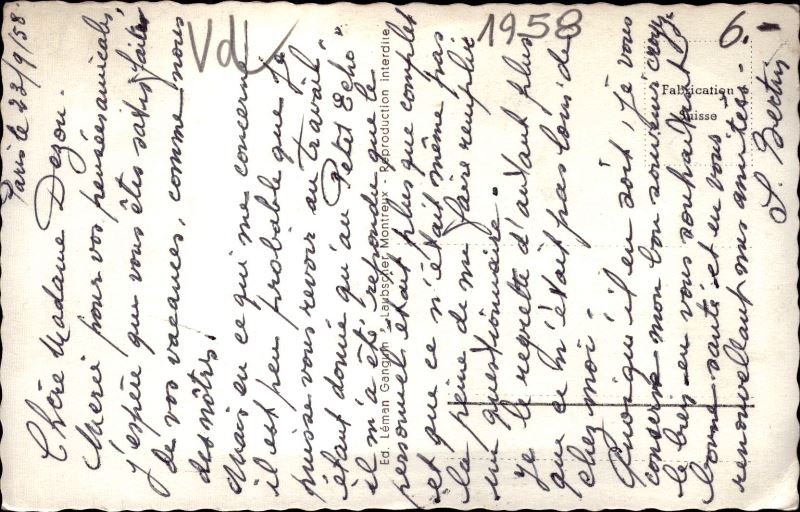 Paris le 23/9/58.
Chère Madame Dezou.
Merci pour vos pensées amicales,
J'espère que vous êtes satisfaites
de vos vacances, comme nous
des nôtres.
Mais en ce qui me concerne
il est peu probable que je
puisse vous revoir au travail
étant donné qu'au "Petit Echo"
il m'a été répondu que le
personnel était plus que complet
et que ce n'était même pas
la peine de me faire remplir
un questionnaire.
Je le regrette d'autant plus
que ce n'était pas loin de
chez moi.
Quoiqu'il en soit, je vous
conserve mon bon souvenir croyez
le bien en vous souhaitant
bonne santé et en vous
renouvellant mes amitiés.
S. Bertin
VdL
1958
6.
Fabrication
Suisse
Ed. Léman Ganguin & Laubscher, Montreux - Reproduction interdite